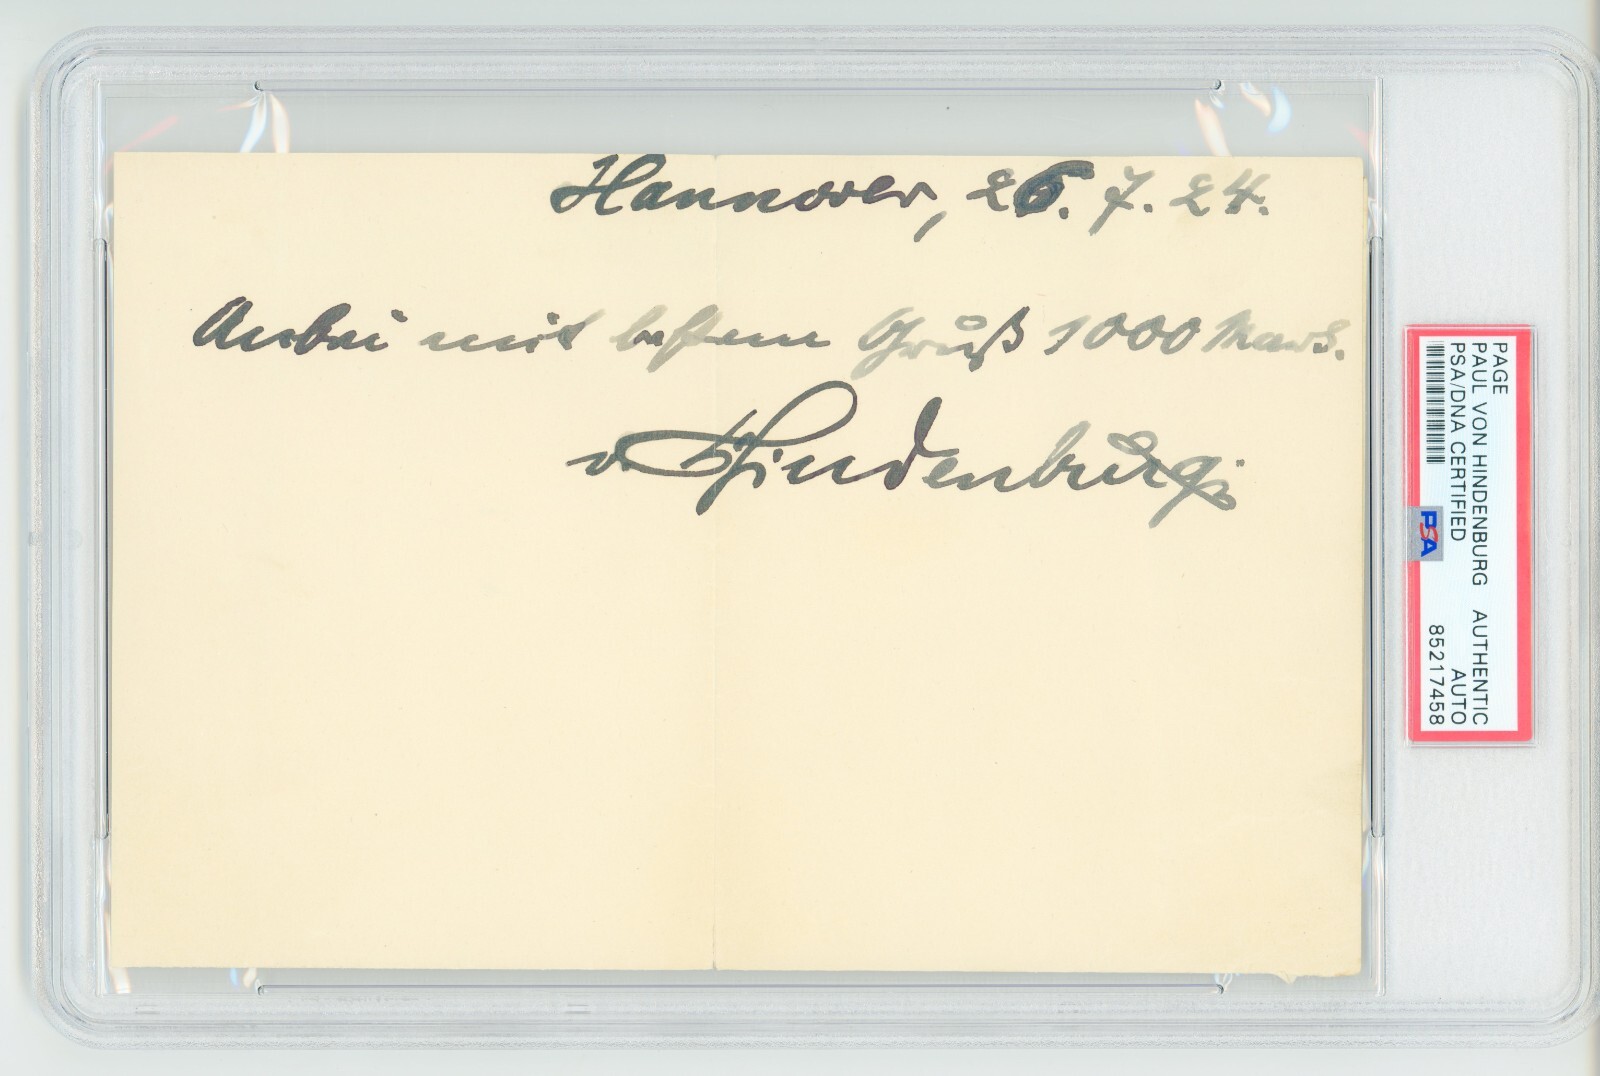 Hannover, 26. 7. 24.
Anbei mit bestem Gruß 1000 Mark.
v Hindenburg.
PAGE
PAUL VON HINDENBURG AUTHENTIC
PSA/DNA CERTIFIED AUTO
85217458
PSA